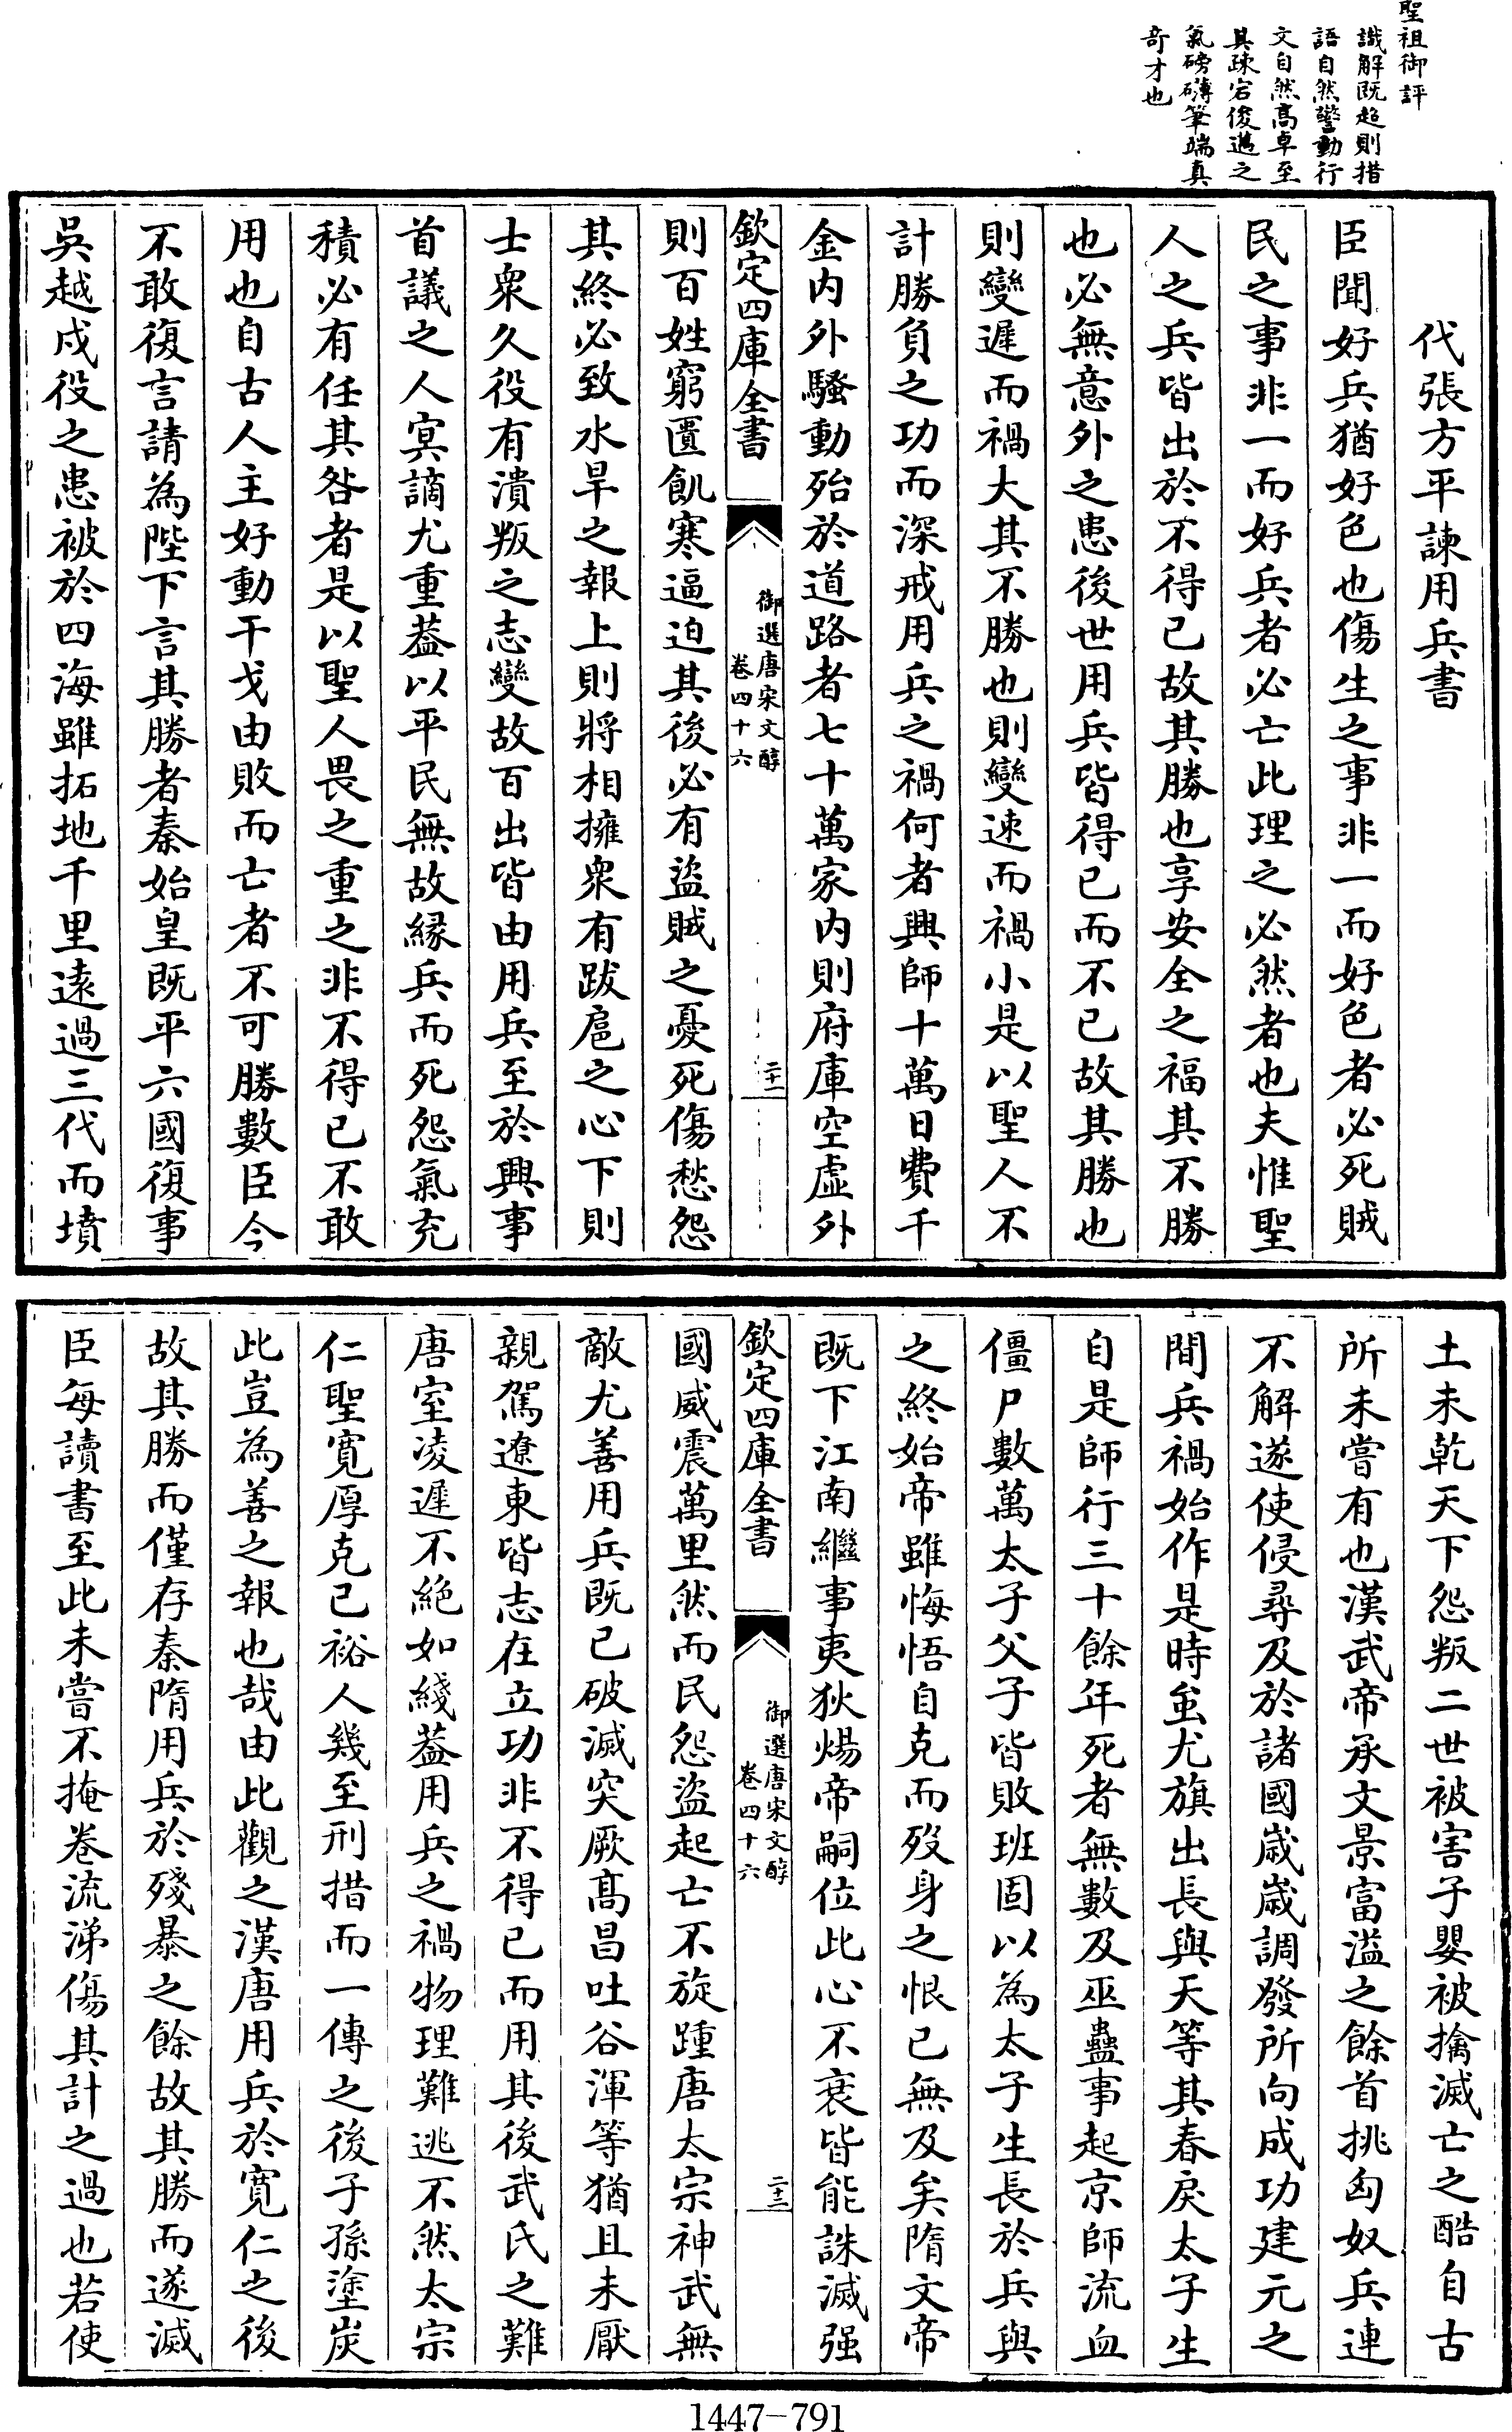 聖祖御評
識解既超則措
語自然警動行
文自然高卓至
其疎宕俊邁之
氣磅礴筆端真
奇才也
代張方平諫用兵書
臣聞好兵猶好色也傷生之事非一而好色者必死賊
民之事非一而好兵者必亡此理之必然者也夫惟聖
人之兵皆出於不得已故其勝也享安全之福其不勝
也必無意外之患後世用兵皆得已而不已故其勝也
則變遲而禍大其不勝也則變速而禍小是以聖人不
計勝負之功而深戒用兵之禍何者興師十萬日費千
金内外騷動殆於道路者七十萬家内則府庫空虛外
欽定四庫全書
御選唐宋文醇
卷四十六
二十二
則百姓窮匱飢寒逼迫其後必有盜賊之憂死傷愁怨
其終必致水旱之報上則將相擁衆有跋扈之心下則
士衆久役有潰叛之志變故百出皆由用兵至於興事
首議之人冥謫尤重葢以平民無故緣兵而死怨氣充
積必有任其咎者是以聖人畏之重之非不得已不敢
用也自古人主好動干戈由敗而亡者不可勝數臣今
不敢復言請為陛下言其勝者秦始皇既平六國復事
吳越戍役之患被於四海雖拓地千里遠過三代而墳
土未乾天下怨叛二世被害子嬰被擒滅亡之酷自古
所未嘗有也漢武帝承文景富溢之餘首挑匈奴兵連
不解遂使侵尋及於諸國歲歲調發所向成功建元之
間兵禍始作是時蚩尤旗出長與天等其春戾太子生
自是師行三十餘年死者無數及巫蠱事起京師流血
僵尸數萬太子父子皆敗班固以為太子生長於兵與
之終始帝雖悔悟自克而歿身之恨已無及矣隋文帝
既下江南繼事夷狄煬帝嗣位此心不衰皆能誅滅强
欽定四庫全書
御選唐宋文醇
卷四十六
二十三
國威震萬里然而民怨盜起亡不旋踵唐太宗神武無
敵尤善用兵既已破滅突厥高昌吐谷渾等猶且未厭
親駕遼東皆志在立功非不得已而用其後武氏之難
唐室凌遲不絕如綫葢用兵之禍物理難逃不然太宗
仁聖寛厚克己裕人幾至刑措而一傳之後子孫塗炭
此豈為善之報也哉由此觀之漢唐用兵於寛仁之後
故其勝而僅存秦隋用兵於殘暴之餘故其勝而遂滅
臣每讀書至此未嘗不掩卷流涕傷其計之過也若使
1447-791